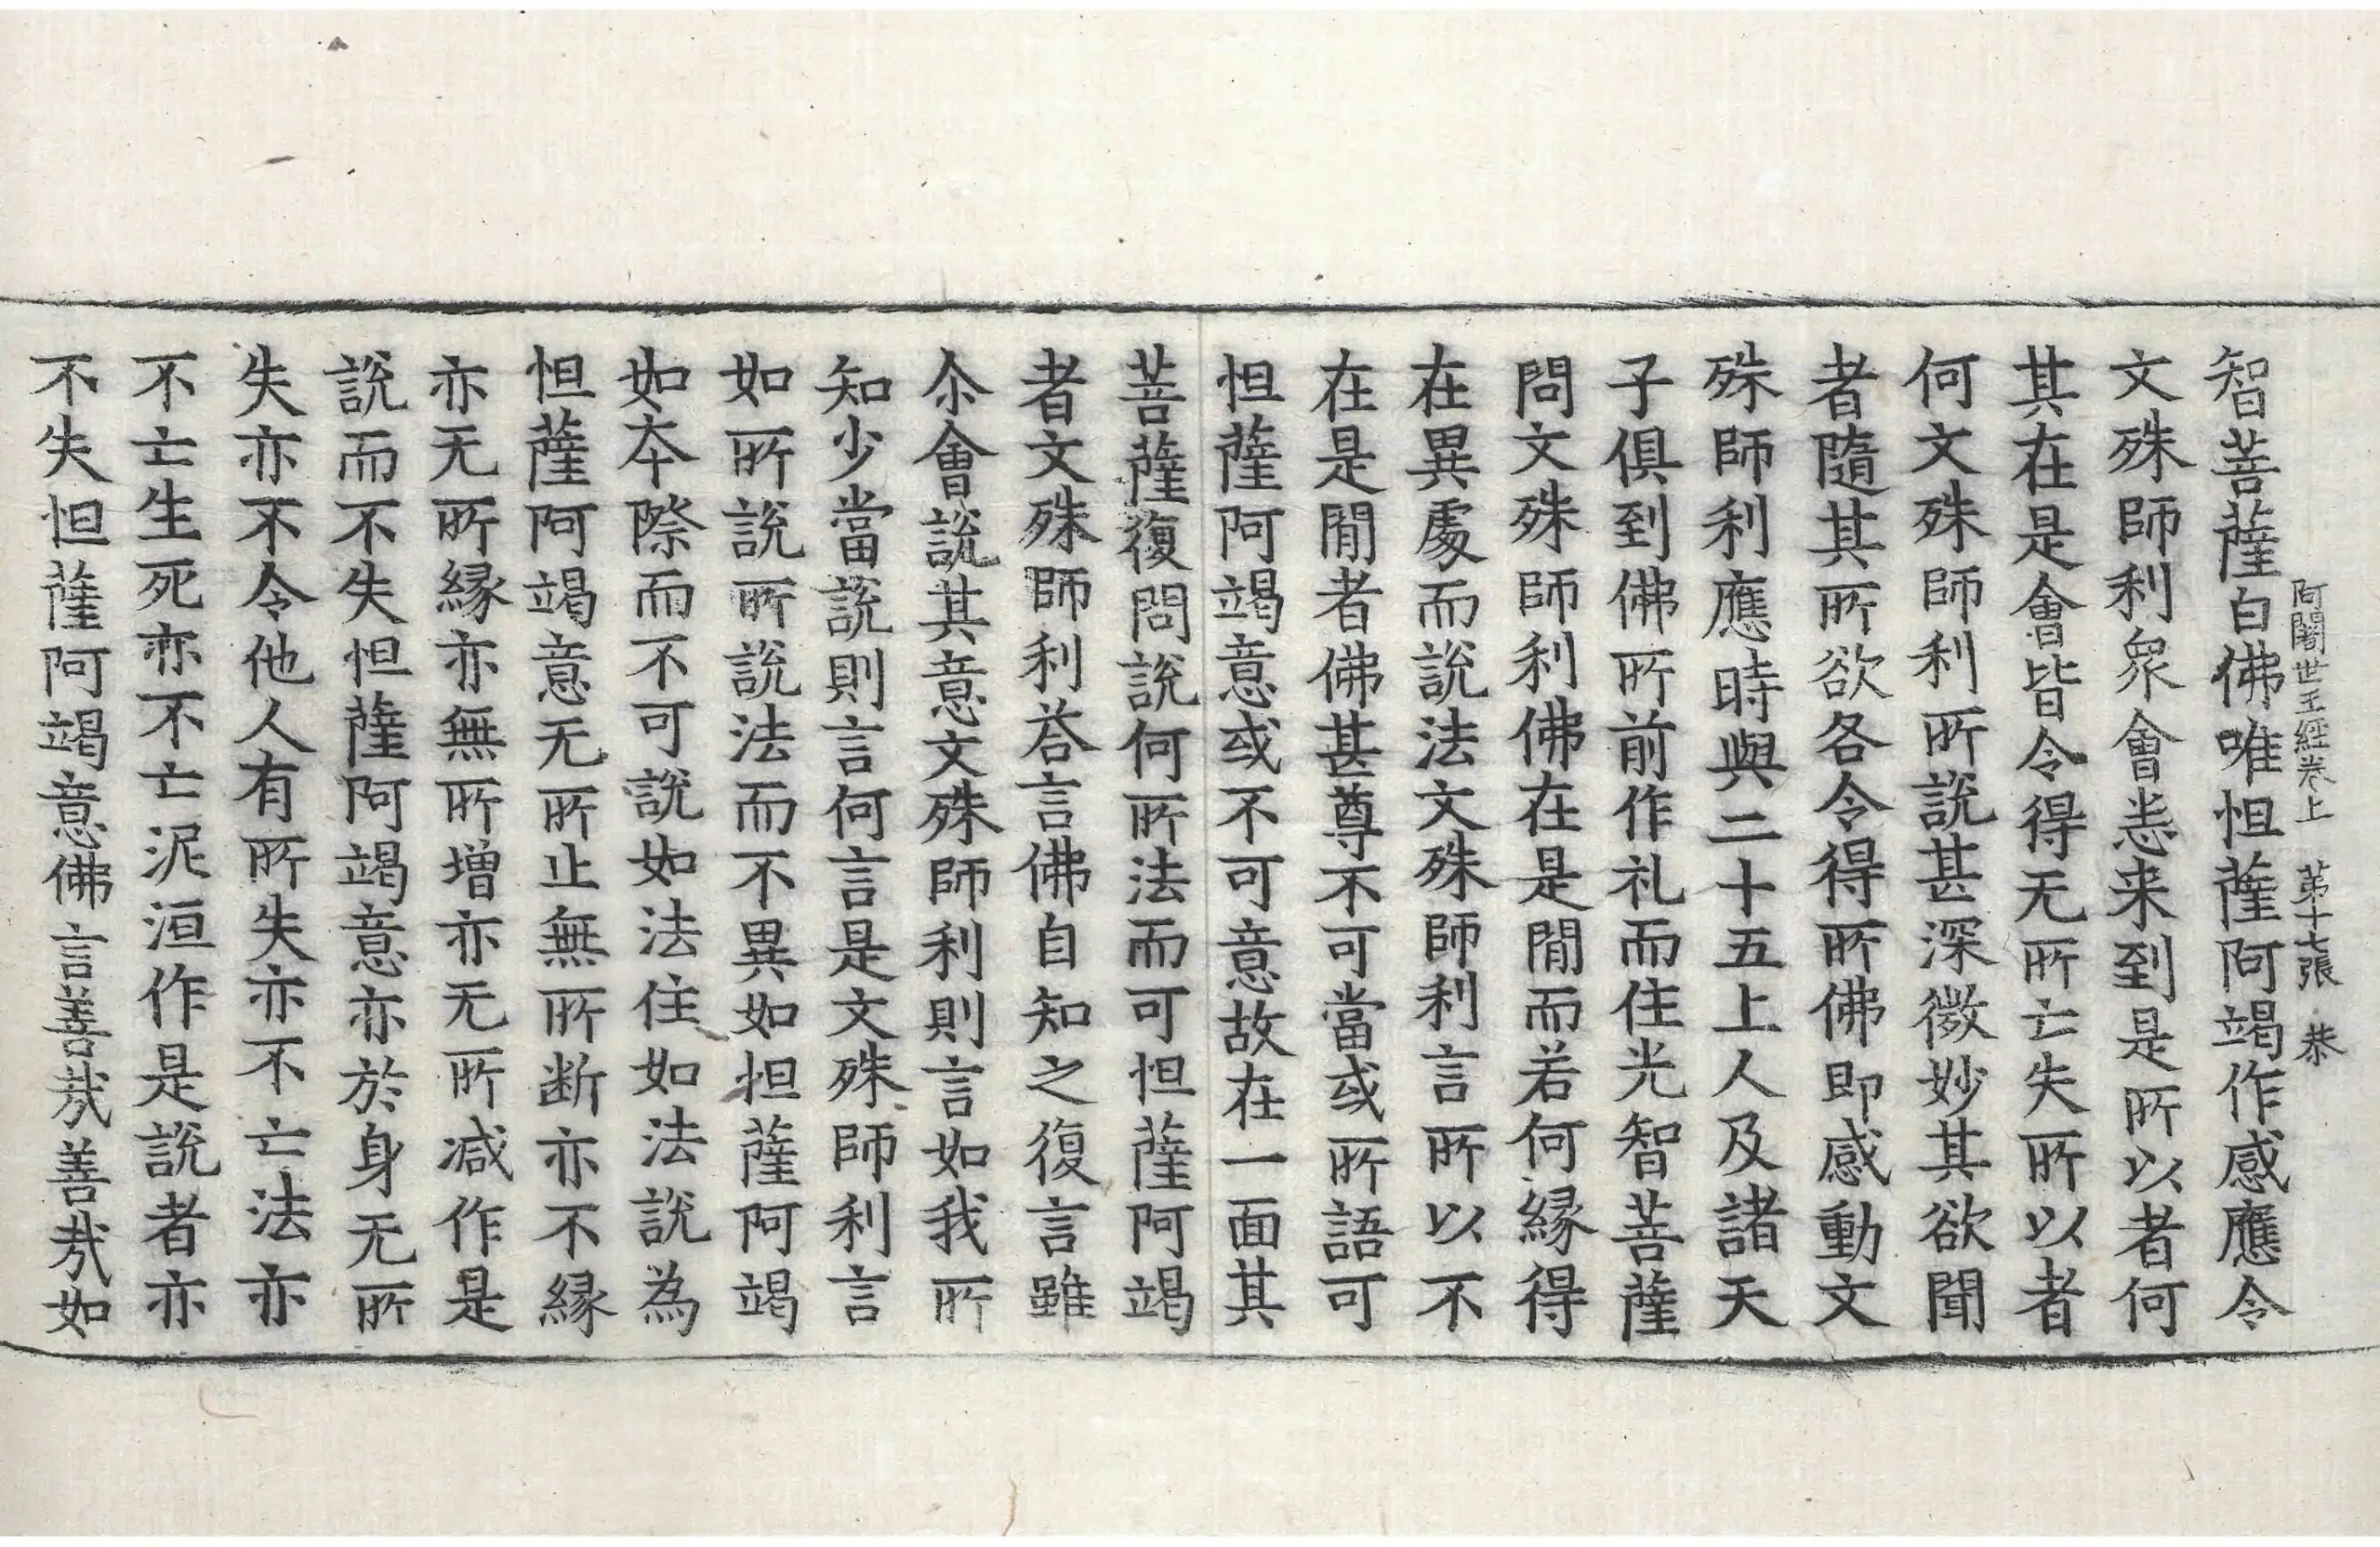 阿闍世王經卷上　第十七張　恭
智菩薩白佛唯怛薩阿竭作感應令
文殊師利衆會悉来到是所以者何
其在是會皆令得无所亡失所以者
何文殊師利所説甚深微妙其欲聞
者隨其所欲各令得所佛即感動文
殊師利應時與二十五上人及諸天
子俱到佛所前作礼而住光智菩薩
問文殊師利佛在是閒而若何縁得
在異處而説法文殊師利言所以不
在是閒者佛甚尊不可當或所語可
怛薩阿竭意或不可意故在一面其
菩薩復問説何所法而可怛薩阿竭
者文殊師利荅言佛自知之復言雖
尒會説其意文殊師利則言如我所
知少當説則言何言是文殊師利言
如所説所説法而不異如担薩阿竭
如夲際而不可説如法住如法説為
怛薩阿竭意无所止無所断亦不縁
亦无所縁亦無所増亦无所减作是
説而不失怛薩阿竭意亦於身无所
失亦不令他人有所失亦不亡法亦
不亡生死亦不亡泥洹作是説者亦
不失怛薩阿竭意佛言善㢤善㢤如